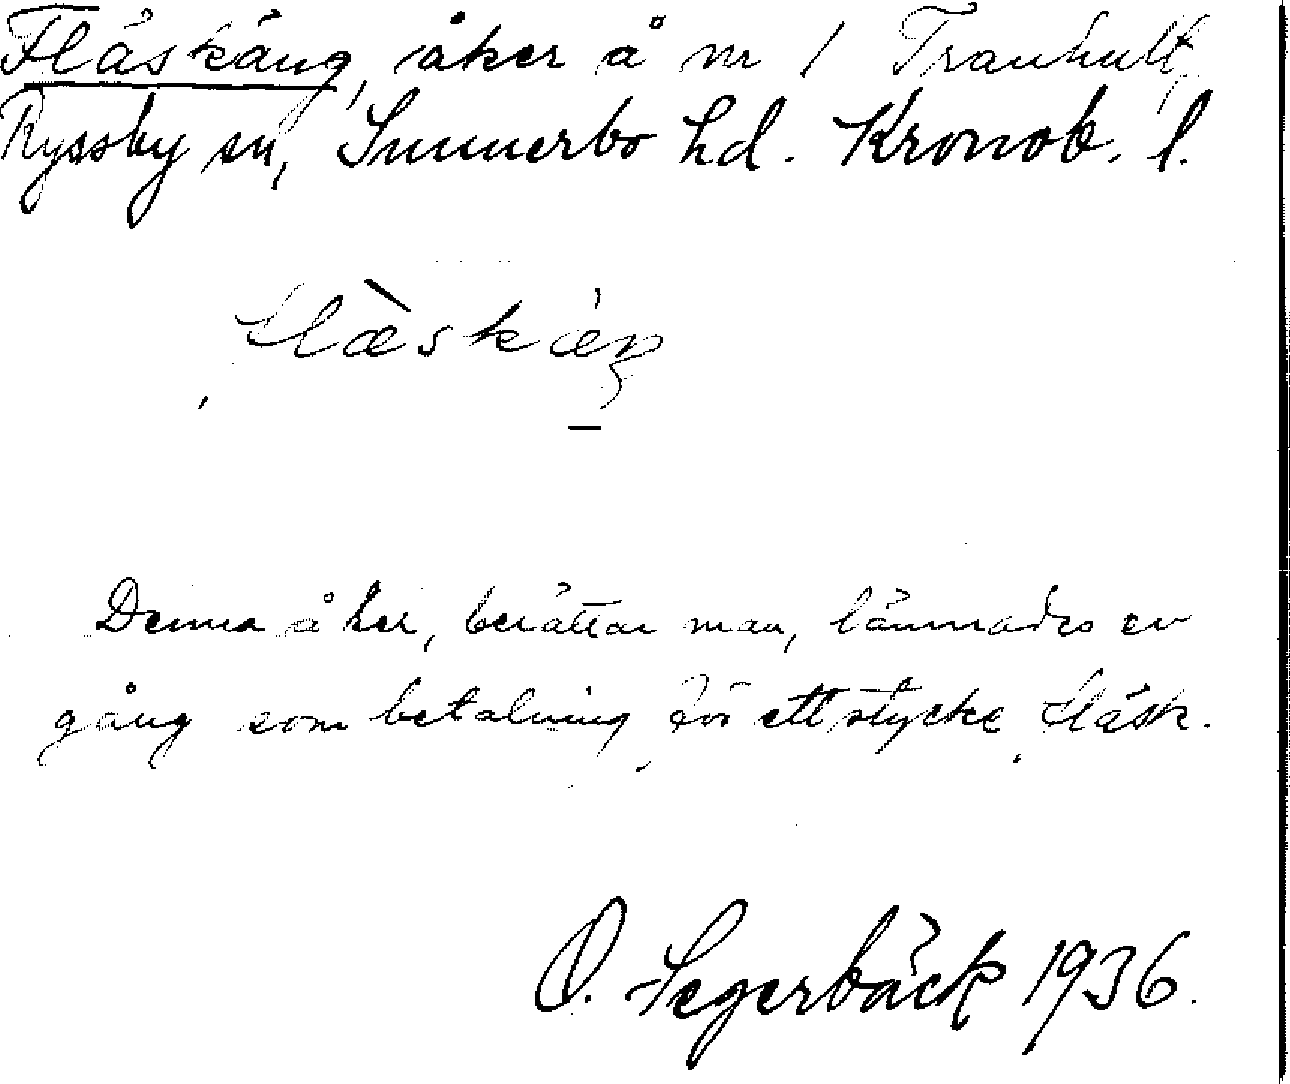 Fläskäng, åker å nr 1 Tranhult,
Ryssby sn, Sunnerbo hd. Kronob. l.
flæ̀skæŋ
Denna åker, berättar man, lämnades en
gång som betalning för ett stycke fläsk.
O. Segerbäck 1936.